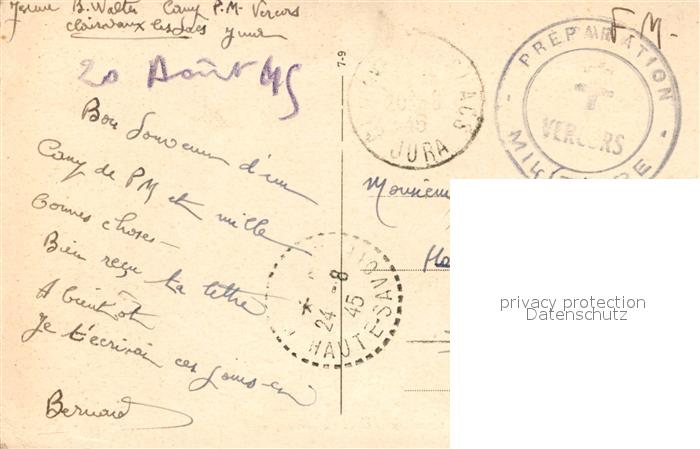 Jeune B. Walter Camp P.M. Vercors
Clairvaux les Lacs Jura
20 Août 45
Bon Souvenir d'un
Camp de PM et mille
bonnes choses —
Bien reçu ta lettre
A bientôt
Je t'écrirai ces jours-ci
Bernard
7-9
F M-
LACS
JURA
PRÉPARATION
VERCORS
MILITAIRE
Monsieur
24 -8
45
HAUTE-SAVOIE
privacy protection
Datenschutz